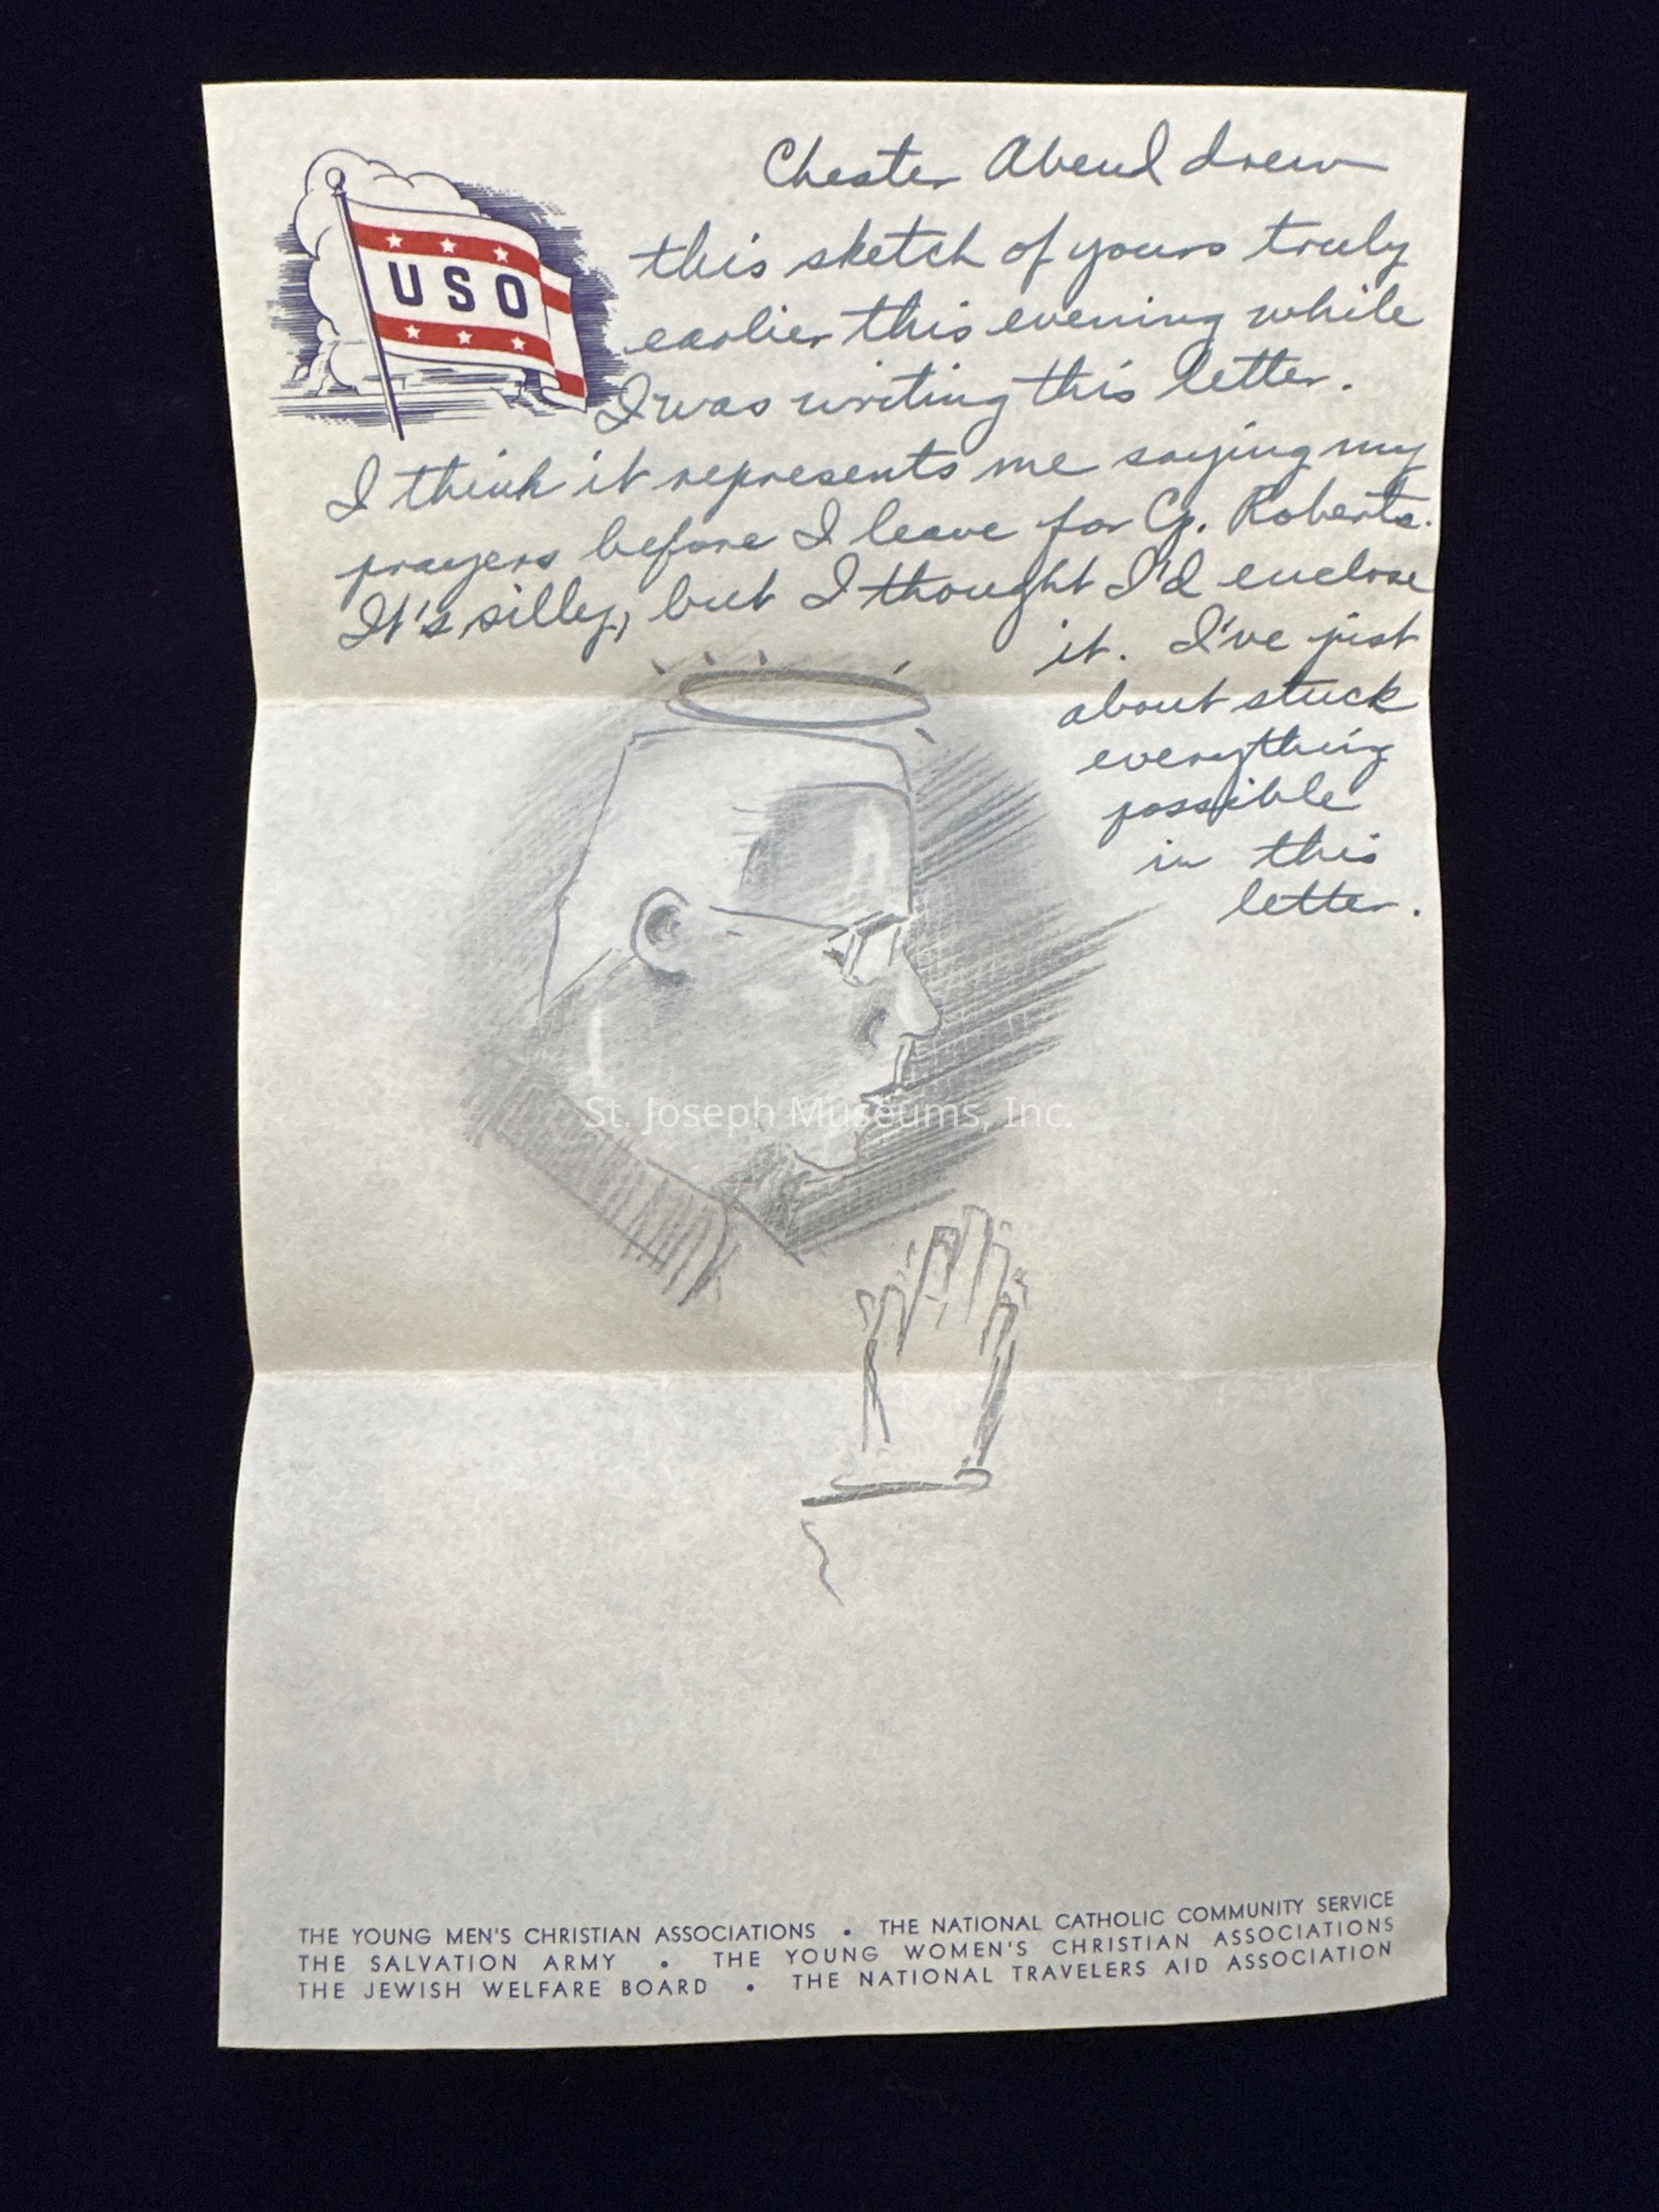 USO
Chester Abend drew
this sketch of yours truly
earlier this evening while
I was writing this letter.
I think it represents me saying my
prayers before I leave for Cp. Roberts.
It's silly, but I thought I'd enclose
it. I've just
about stuck
everything
possible
in this
letter.
St. Joseph Museums, Inc.
THE YOUNG MEN'S CHRISTIAN ASSOCIATIONS • THE NATIONAL CATHOLIC COMMUNITY SERVICE
THE SALVATION ARMY • THE YOUNG WOMEN'S CHRISTIAN ASSOCIATIONS
THE JEWISH WELFARE BOARD • THE NATIONAL TRAVELERS AID ASSOCIATION